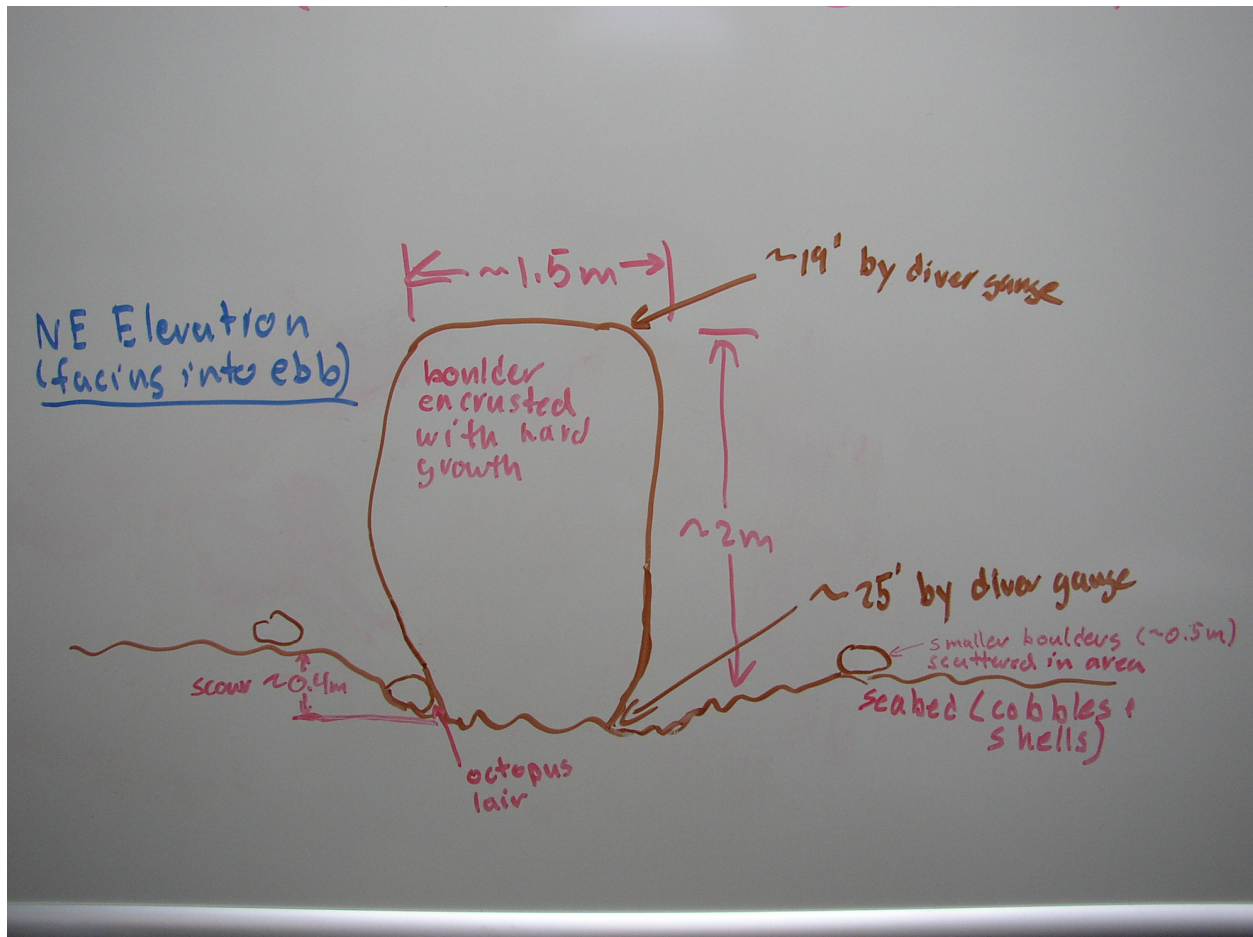 NE Elevation
(facing into ebb)
~1.5m
~19' by diver gauge
boulder
encrusted
with hard
growth
~2m
~25' by diver gauge
smaller boulders (~0.5m)
scattered in area
scour ~0.4m
seabed (cobbles +
shells)
octopus
lair